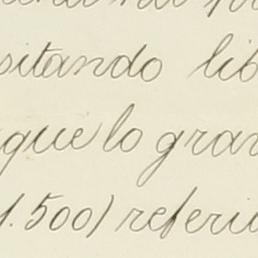 sitando lib
que lo gra
1.500) referi